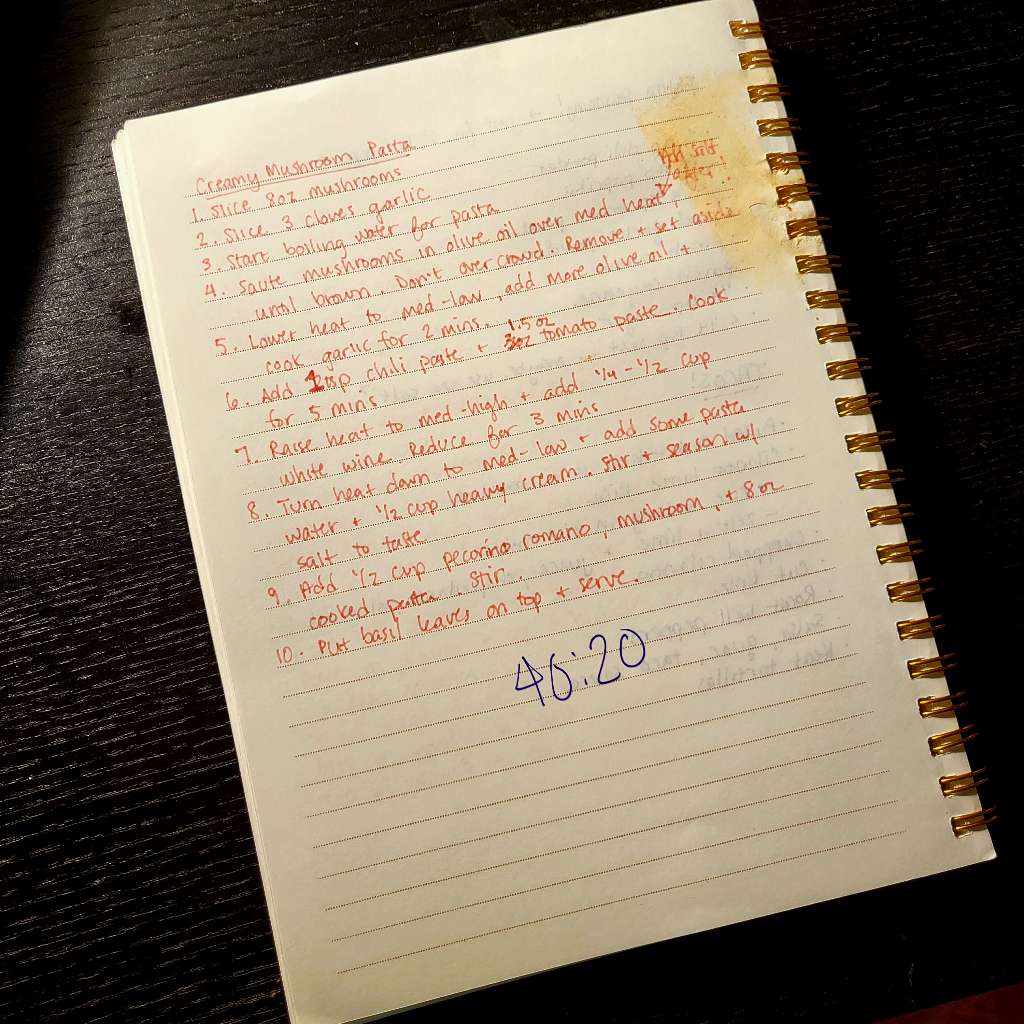 Creamy Mushroom Pasta
1. Slice 8oz mushrooms
2. Slice 3 cloves garlic
salt
3. Start boiling water for pasta
4. Saute mushrooms in olive oil over med heat
until brown. Don't overcrowd. Remove + set aside
5. Lower heat to med-low, add more olive oil +
cook garlic for 2 mins.
1.5 oz
6. Add 1 tbsp chili paste + tomato paste. Cook
for 5 mins
7. Raise heat to med-high + add 1/4 - 1/2 cup
white wine. Reduce for 3 mins
8. Turn heat down to med-low + add some pasta
water + 1/2 cup heavy cream. Stir + season w/
salt to taste
9. Add 1/2 cup pecorino romano, mushroom, + 8 oz
cooked pasta. Stir.
10. Put basil leaves on top + serve.
40:20